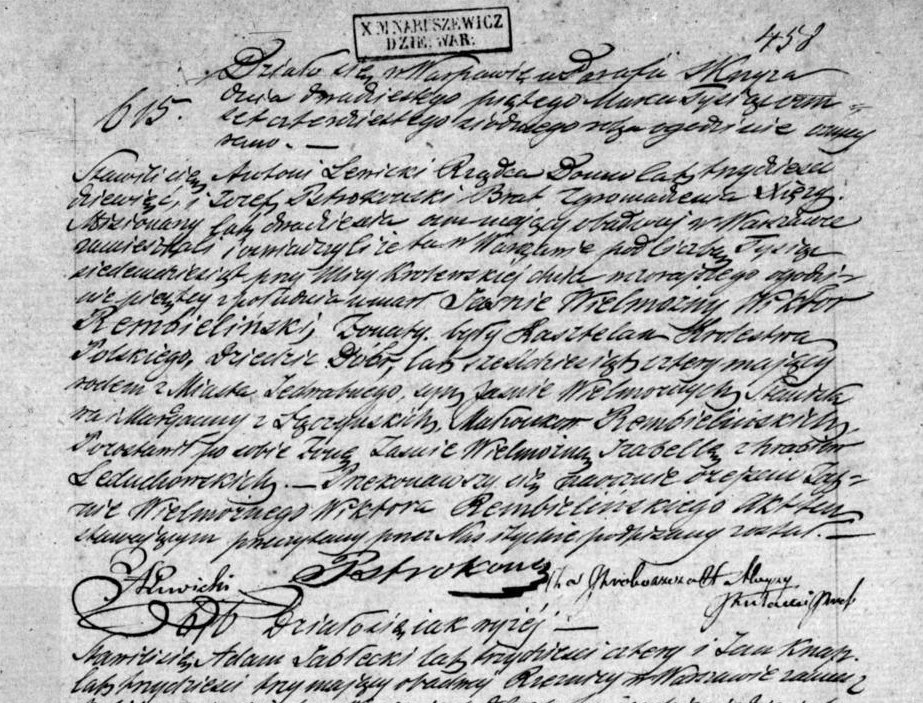 X M NARUSZEWICZ
DZIE: WAR:
458
Działo się w Warszawie w Parafii S Krzyża
615. dnia dwudziestego piątego Marca tysiąc ośm-
set czterdziestego siódmego roku o godzinie
rano. —
Stawili się Antoni Lewicki Rządca Domu lat trzydzieści
dziewięć, i Józef Pstrokoński Brat Zgromadzenia Xięży
Missionarzy lat dwadzieścia mający obadwaj w Warszawie
zamieszkali i oświadczyli że tu w Warszawie pod liczbą Tysiąc
siedemdziesiąt przy Ulicy Królewskiej dnia wczorajszego o godzi-
nie piątej z południa umarł Jaśnie Wielmożny Wiktor
Rembieliński, Żonaty. były Kasztelan Królestwa
Polskiego, Dziedzic Dóbr, lat sześćdziesiąt cztery mający
rodem z Miasta Jedwabnego, syn Jaśnie Wielmożnych Stanisła
wa i Maryanny z Małżonków Rembielińskich,
Pozostawił po sobie Żonę Jaśnie Wielmożną Izabellę z Hrabiów
Leduchowskich. — Przekonawszy się naocznie o zejściu Jaś-
nie Wielmożnego Wiktora Rembielińskiego Akt ten
stawającym przeczytany przez Nas i tychże podpisany został. —
ALewicki Pstrokoński
616 Działo się jak wyżej —
Stawili się Adam Jabłecki lat trzydzieści cztery i Jan Knap.
lat trzydzieści trzy mający obadwaj Rzeźnicy w Warszawie zamiesz